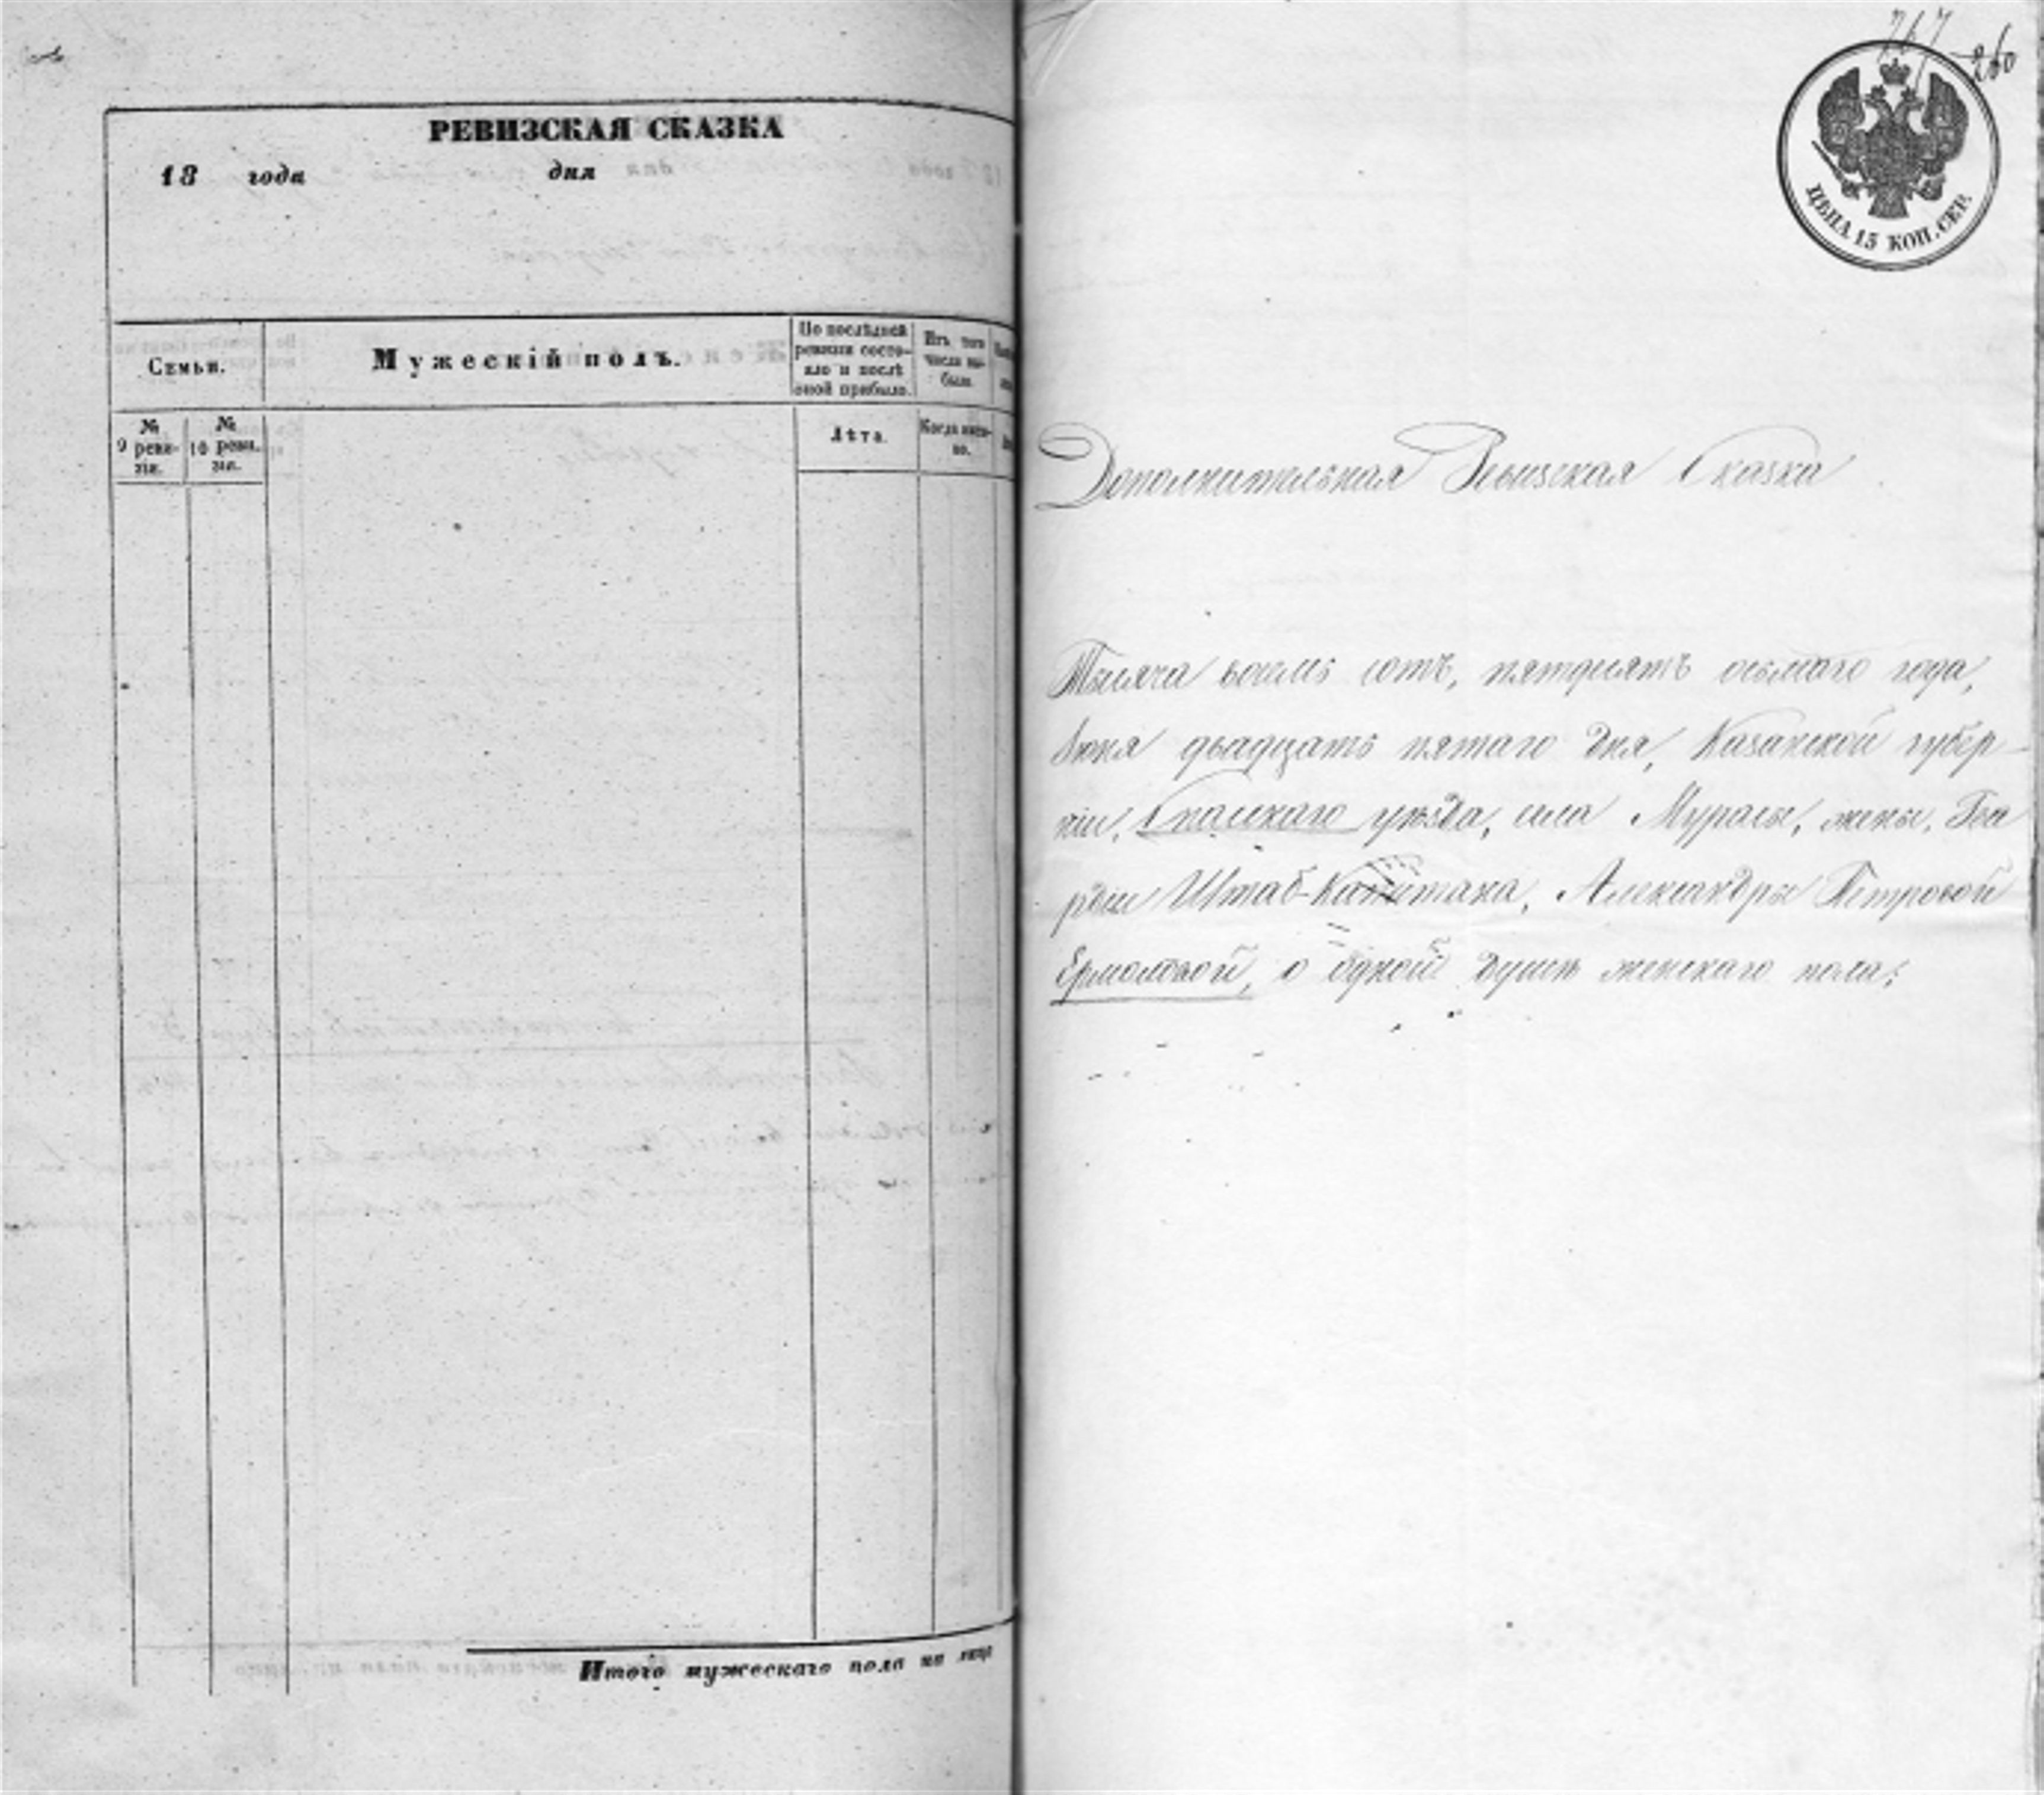 РЕВИЗСКАЯ СКАЗКА
18 года дня
Семьи.
Мужескій полъ.
По послѣдней ревизіи состо-
яло и послѣ
оной прибыло.
Изъ того
числа вы-
было.
№
9 реви-
зіи.
№
10 реви-
зіи.
Лѣта.
Когда имен-
но.
Итого мужескаго пола на лицо
267
260
ЦѢНА 15 КОП. СЕР.
Дополнительная Ревизская Сказка
Тысяча восемь сотъ, пятдесятъ осьмаго года,
Іюня двадцать пятаго дня, Казанской губер-
ніи, Спасскаго уѣзда, села Муралы, жены, Гва
рдіи Штаб-Капитана, Александры Петровой
Ермоловой, о одной душѣ женскаго пола: